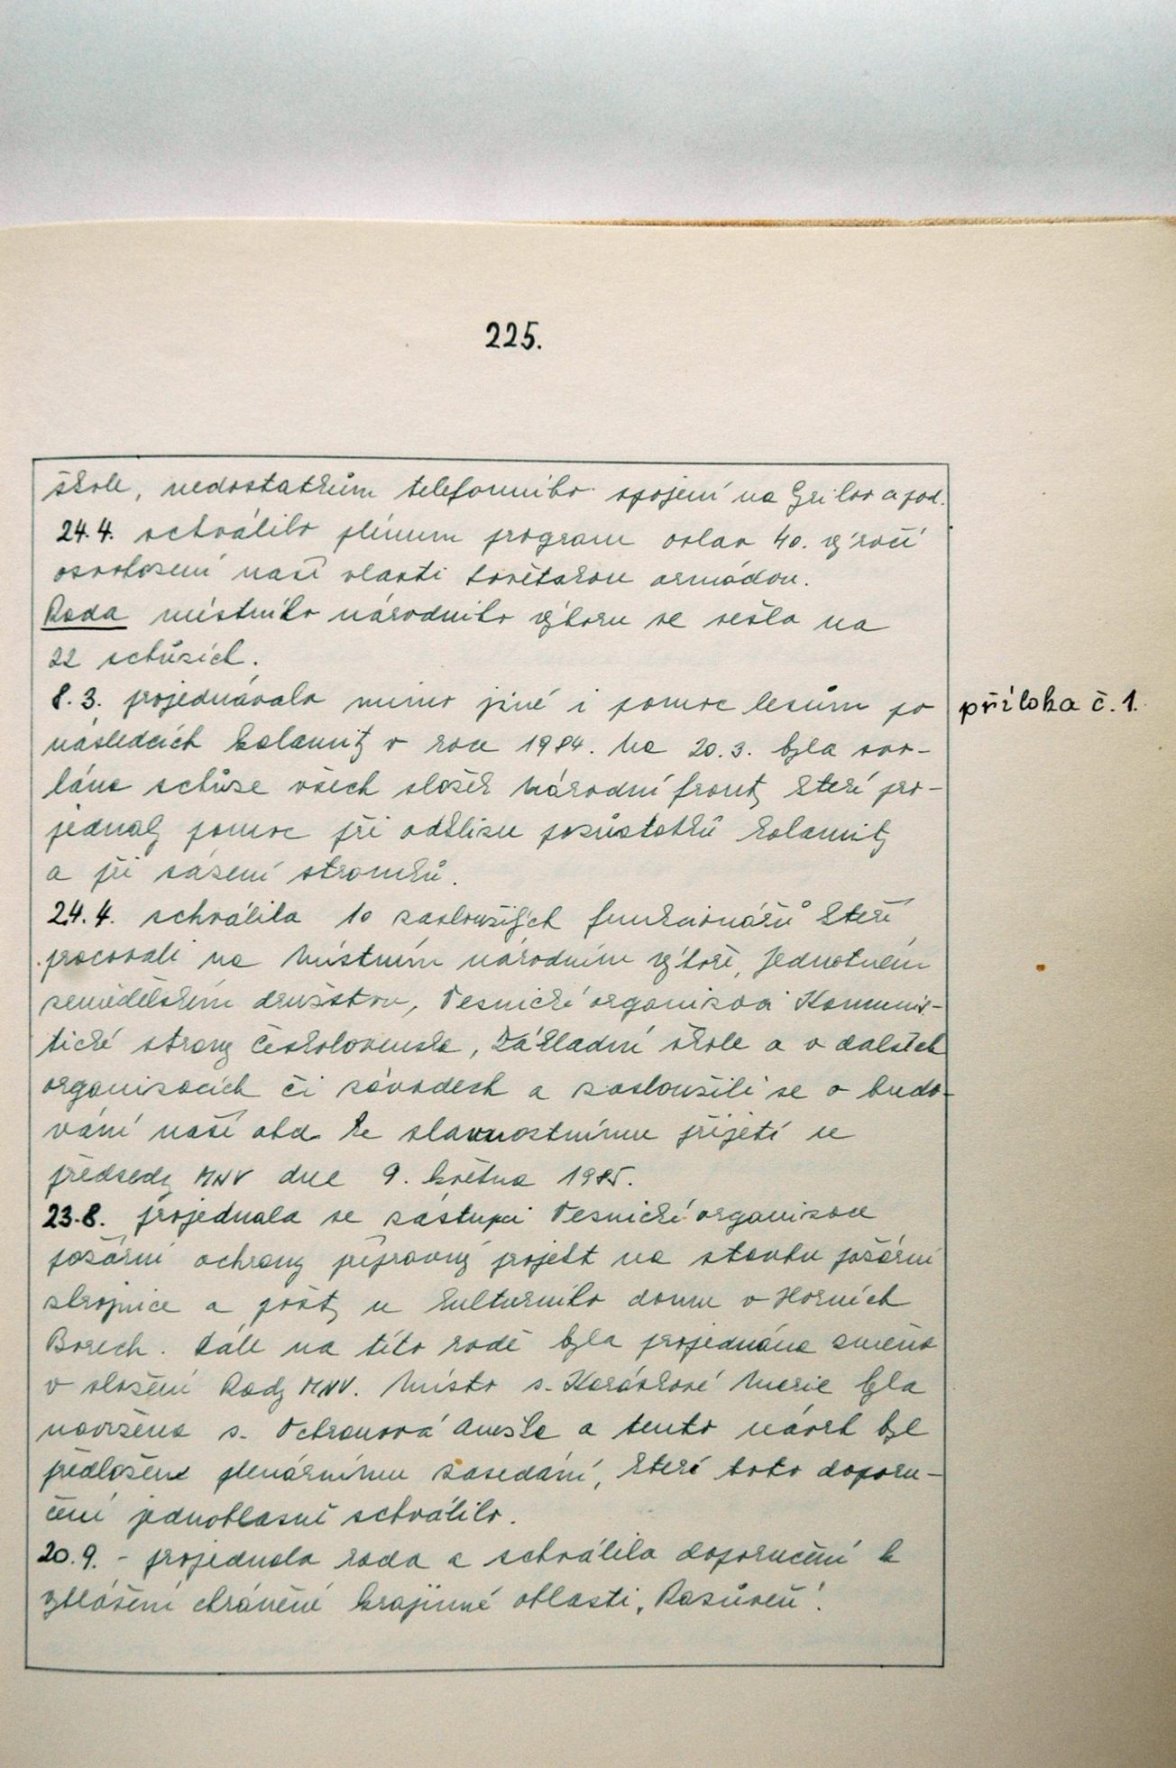 225.
škole, nedostatkům telefonního spojení na Grilov a pod.
24.4. schválilo plénum program oslav 40. výročí
osvobození naší vlasti Sovětskou armádou.
Rada místního národního výboru se sešla na
22 schůzích.
8.3. projednávala mimo jiné i pomoc lesům po
příloha č. 1.
následcích kalamity v roce 1984. Na 20.3. byla svo-
lána schůze všech složek Národní fronty které pro-
jednaly pomoc při odklizu pozůstatků kalamity
a při sázení stromků.
24.4. schválila 10 zasloužilých funkcionářů kteří
pracovali na Místním národním výboře, Jednotném
zemědělském družstvu, Vesnické organizaci Komunis-
tické strany Československa, Základní škole a v dalších
organizacích či závodech a zasloužili se o budo-
vání naší obce ke slavnostnímu přijetí u
předsedy MNV dne 9. května 1985.
23.8. projednala se zástupci Vesnické organizace
požární ochrany přípravný projekt na stavbu požární
zbrojnice a pošty u kulturního domu v Horních
Borech. Dále na této radě byla projednána změna
v složení Rady MNV. Místo s. Karáskové Marie byla
navržena s. Ochranová Anežka a tento návrh byl
předložen plenárnímu zasedání, které toto doporu-
čení jednohlasně schválilo.
20.9. - projednala rada a schválila doporučení k
vyhlášení chráněné krajinné oblasti „Rasůveň".